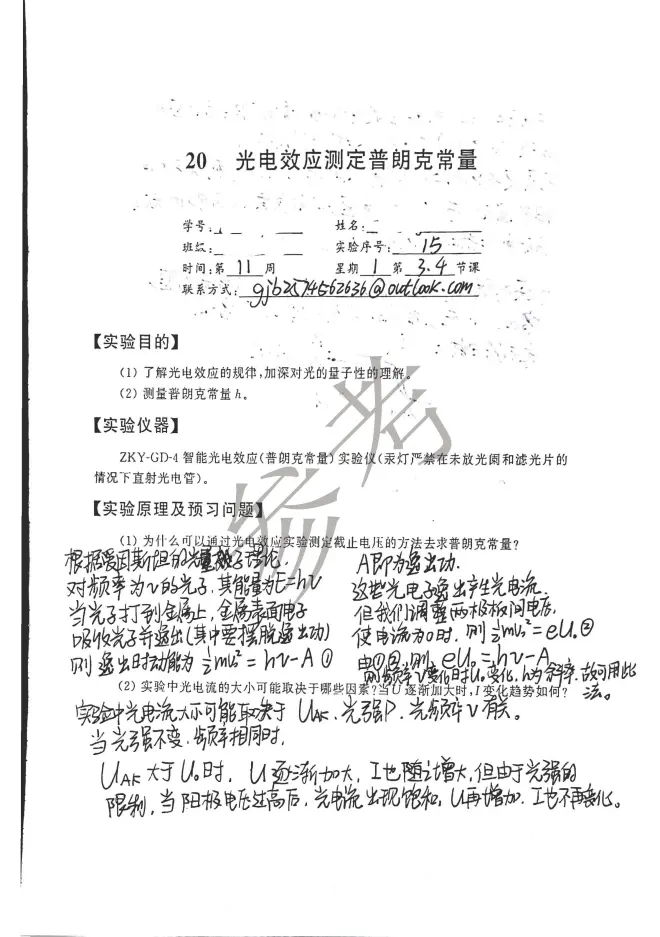 20 光电效应测定普朗克常量
学号:
姓名:
班级:
实验序号: 15
时间:第 11 周
星期 1 第 3.4 节课
联系方式: gjb2574562636@outlook.com
【实验目的】
(1) 了解光电效应的规律,加深对光的量子性的理解。
(2) 测量普朗克常量 h。
【实验仪器】
ZKY-GD-4 智能光电效应(普朗克常量)实验仪(汞灯严禁在未放光阑和滤光片的
情况下直射光电管)。
参考
实验
【实验原理及预习问题】
(1) 为什么可以通过光电效应实验测定截止电压的方法去求普朗克常量?
根据爱因斯坦的光量子理论.
对频率为ν的光子,其能量为E=hν
当光子打到金属上,金属表面电子
吸收光子并逸出(其中要摆脱逸出功)
则逸出时动能为 ½mv₀² = hν-A ①
A即为逸出功.
这些光电子逸出产生光电流.
但我们调整两极板间电压,
使电流为0时,则½mv₀²=eU₀②
由①②,则 eU₀=hν-A
则频率ν变化时U₀变化,h为斜率.故可用此
法。
(2) 实验中光电流的大小可能取决于哪些因素?当U逐渐加大时,I变化趋势如何?
实验中光电流大小可能取决于 U_AK.光强P.光频率ν有关。
当光强不变.频率相同时,
U_AK大于U₀时, U逐渐加大,I也随之增大,但由于光强的
限制,当阳极电压过高后,光电流出现饱和,U再增加.I也不再变化。